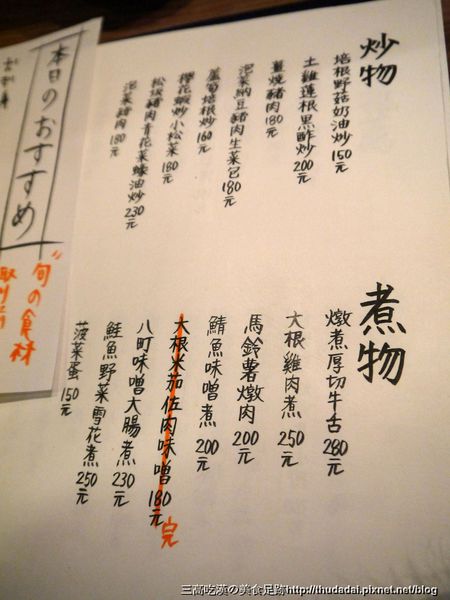 炒物
培根野菇奶油炒 150元
土雞蓮根黑酢炒 200元
薑燒豬肉 180元
泡菜納豆豬肉生菜包 180元
蘆筍培根炒 160元
櫻花蝦炒小松菜 180元
松坂豬肉青花菜蠔油炒 230元
泡菜豬肉 180元
煮物
燉煮厚切牛舌 280元
大根雞肉煮 250元
馬鈴薯燉肉 200元
鯖魚味噌煮 200元
大根米茄佐肉味噌 180元 完
八町味噌大腸煮 230元
鮭魚野菜雪花煮 250元
菠菜蛋 150元
本日のおすすめ
旬の食材
三高吃漢の美食足跡http://thudadai.pixnet.net/blog